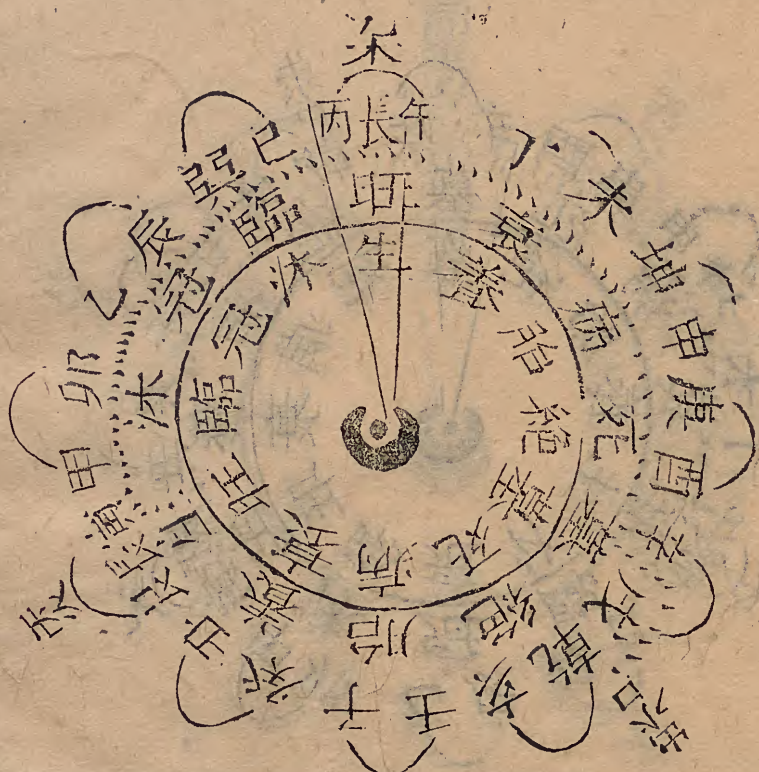 丙長午
丁未
坤申
庚酉
辛戌
乾亥
壬子
癸丑
艮長寅
甲卯
乙辰
巽巳
旺
衰
病
死
墓
絕
胎
養
生
沐
冠
臨
生
養
胎
絶
墓
死
病
衰
旺
臨
冠
沐